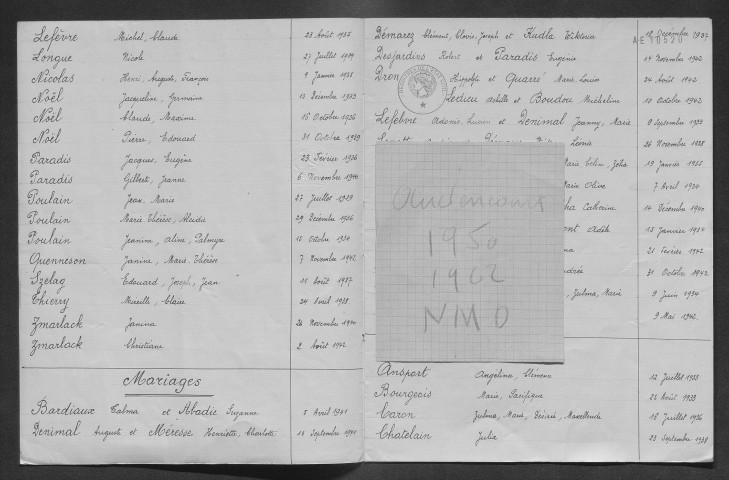 Lefèvre Michel, Claude 23 Août 1935
Longue Nicole 27 Juillet 1929
Nicolas Henri, Auguste, François 9 Janvier 1938
Noël Jacqueline, Germaine 12 Décembre 1933
Noël Claude, Maxime 16 Octobre 1936
Noël Pierre, Edouard 31 Octobre 1929
Paradis Jacques, Eugène 23 Février 1936
Paradis Gilbert, Jeanne 6 Novembre
Poulain Jean, Marie 27 Juillet 1929
Poulain Marie Thérèse, Alcidie 29 Décembre 1936
Poulain Jeanine, Aline, Palmyre 10 Octobre 1934
Quenneson Janine, Marie, Thérèse 7 Novembre 1942
Szelag Edouard, Joseph, Jean 11 Août 1937
Thierry Mireille, Claire 24 Avril 1938
Zmarlack Janina 26 Novembre
Zmarlack Christiane 2 Août 1942
Mariages
Bardiaux Talma et Abadie Suzanne 5 Avril 1941
Denimal Auguste et Méresse Henriette, Charlotte 14 Septembre
Démarez Clément, Clovis, Joseph et Kudla Wiktoria Décembre 1937
Desjardins Robert et Paradis Eugénie 14 Novembre 1942
Dron Hippolyte et Quarré Marie Louise 24 Août 1942
Ledieu Achille et Boudou Micheline 10 Octobre 1942
Lefebvre Adonis, Lucien et Denimal Jeanny, Marie 9 Septembre 1933
Léonie 26 Novembre 1928
19 Janvier 1935
Olive 7 Avril 1934
Catherine 14 Décembre 1940
Adèle 13 Janvier 1934
21 Février 1942
31 Octobre 1942
Julma, Marie 9 Juin 1934
9 Mai 1942
Audencourt
1950
1962
NMD
Anspart Angelina, Clémence 12 Juillet 1933
Bourgeois Marie, Pacifique 24 Août 1933
Caron Julma, Marie, Désirée, Maxellende 18 Juillet 1936
Chatelain Julie 23 Septembre 1938